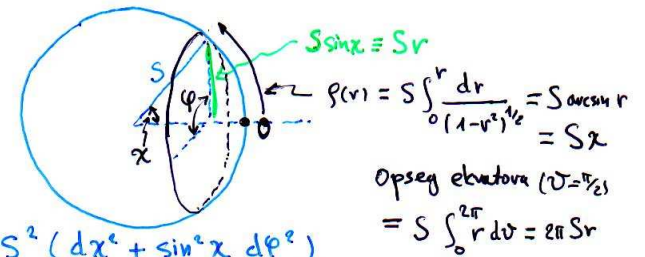 S sinχ ≡ Sr
S
φ
χ
0
ρ(r) = S ∫₀^r dr / (1-r²)^{1/2} = S arcsin r
= Sχ
Opseg ekvatora (ϑ=π/2)
= S ∫₀^{2π} r dϑ = 2π Sr
S² (dχ² + sin²χ dφ²)